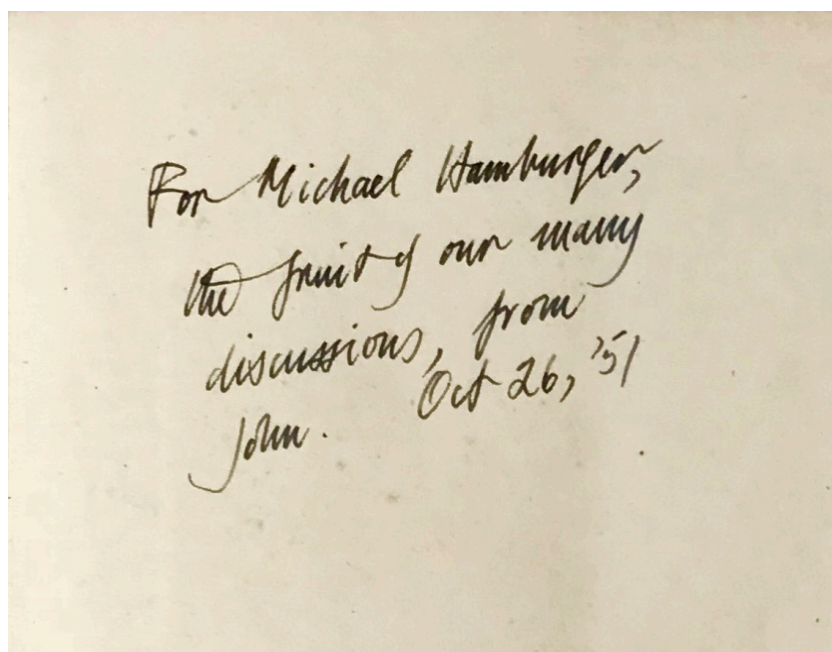 For Michael Hamburger,
the fruit of our many
discussions, from
John. Oct 26, '51